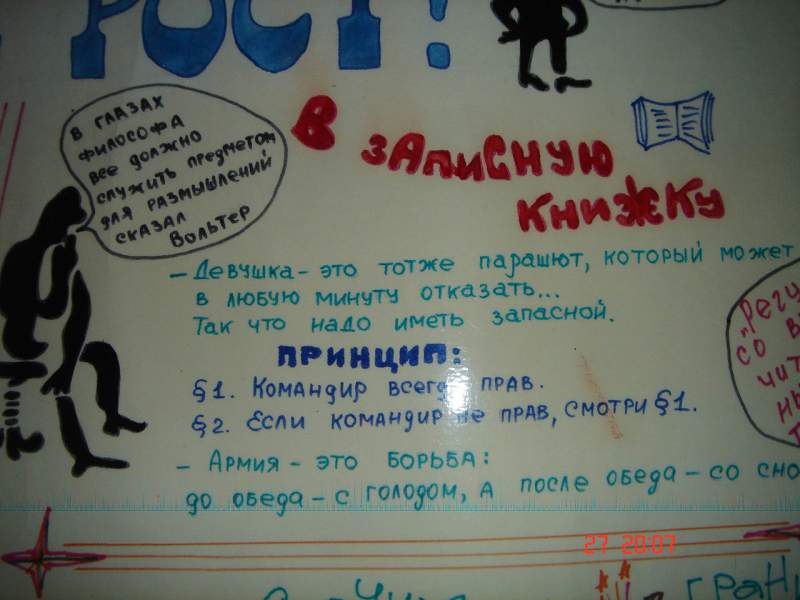 РОСТ!
В ГЛАЗАХ
ФИЛОСОФА
ВСЕ ДОЛЖНО
СЛУЖИТЬ ПРЕДМЕТОМ
ДЛЯ РАЗМЫШЛЕНИЙ
СКАЗАЛ
ВОЛЬТЕР
В ЗАПИСНУЮ
КНИЖКУ
– ДЕВУШКА – ЭТО ТОТЖЕ ПАРАШЮТ, КОТОРЫЙ МОЖЕТ
В ЛЮБУЮ МИНУТУ ОТКАЗАТЬ...
ТАК ЧТО НАДО ИМЕТЬ ЗАПАСНОЙ.
ПРИНЦИП:
§1. КОМАНДИР ВСЕГДА ПРАВ.
§2. ЕСЛИ КОМАНДИР НЕ ПРАВ, СМОТРИ §1.
– АРМИЯ – ЭТО БОРЬБА:
ДО ОБЕДА – С ГОЛОДОМ, А ПОСЛЕ ОБЕДА – СО СНО
27 2007